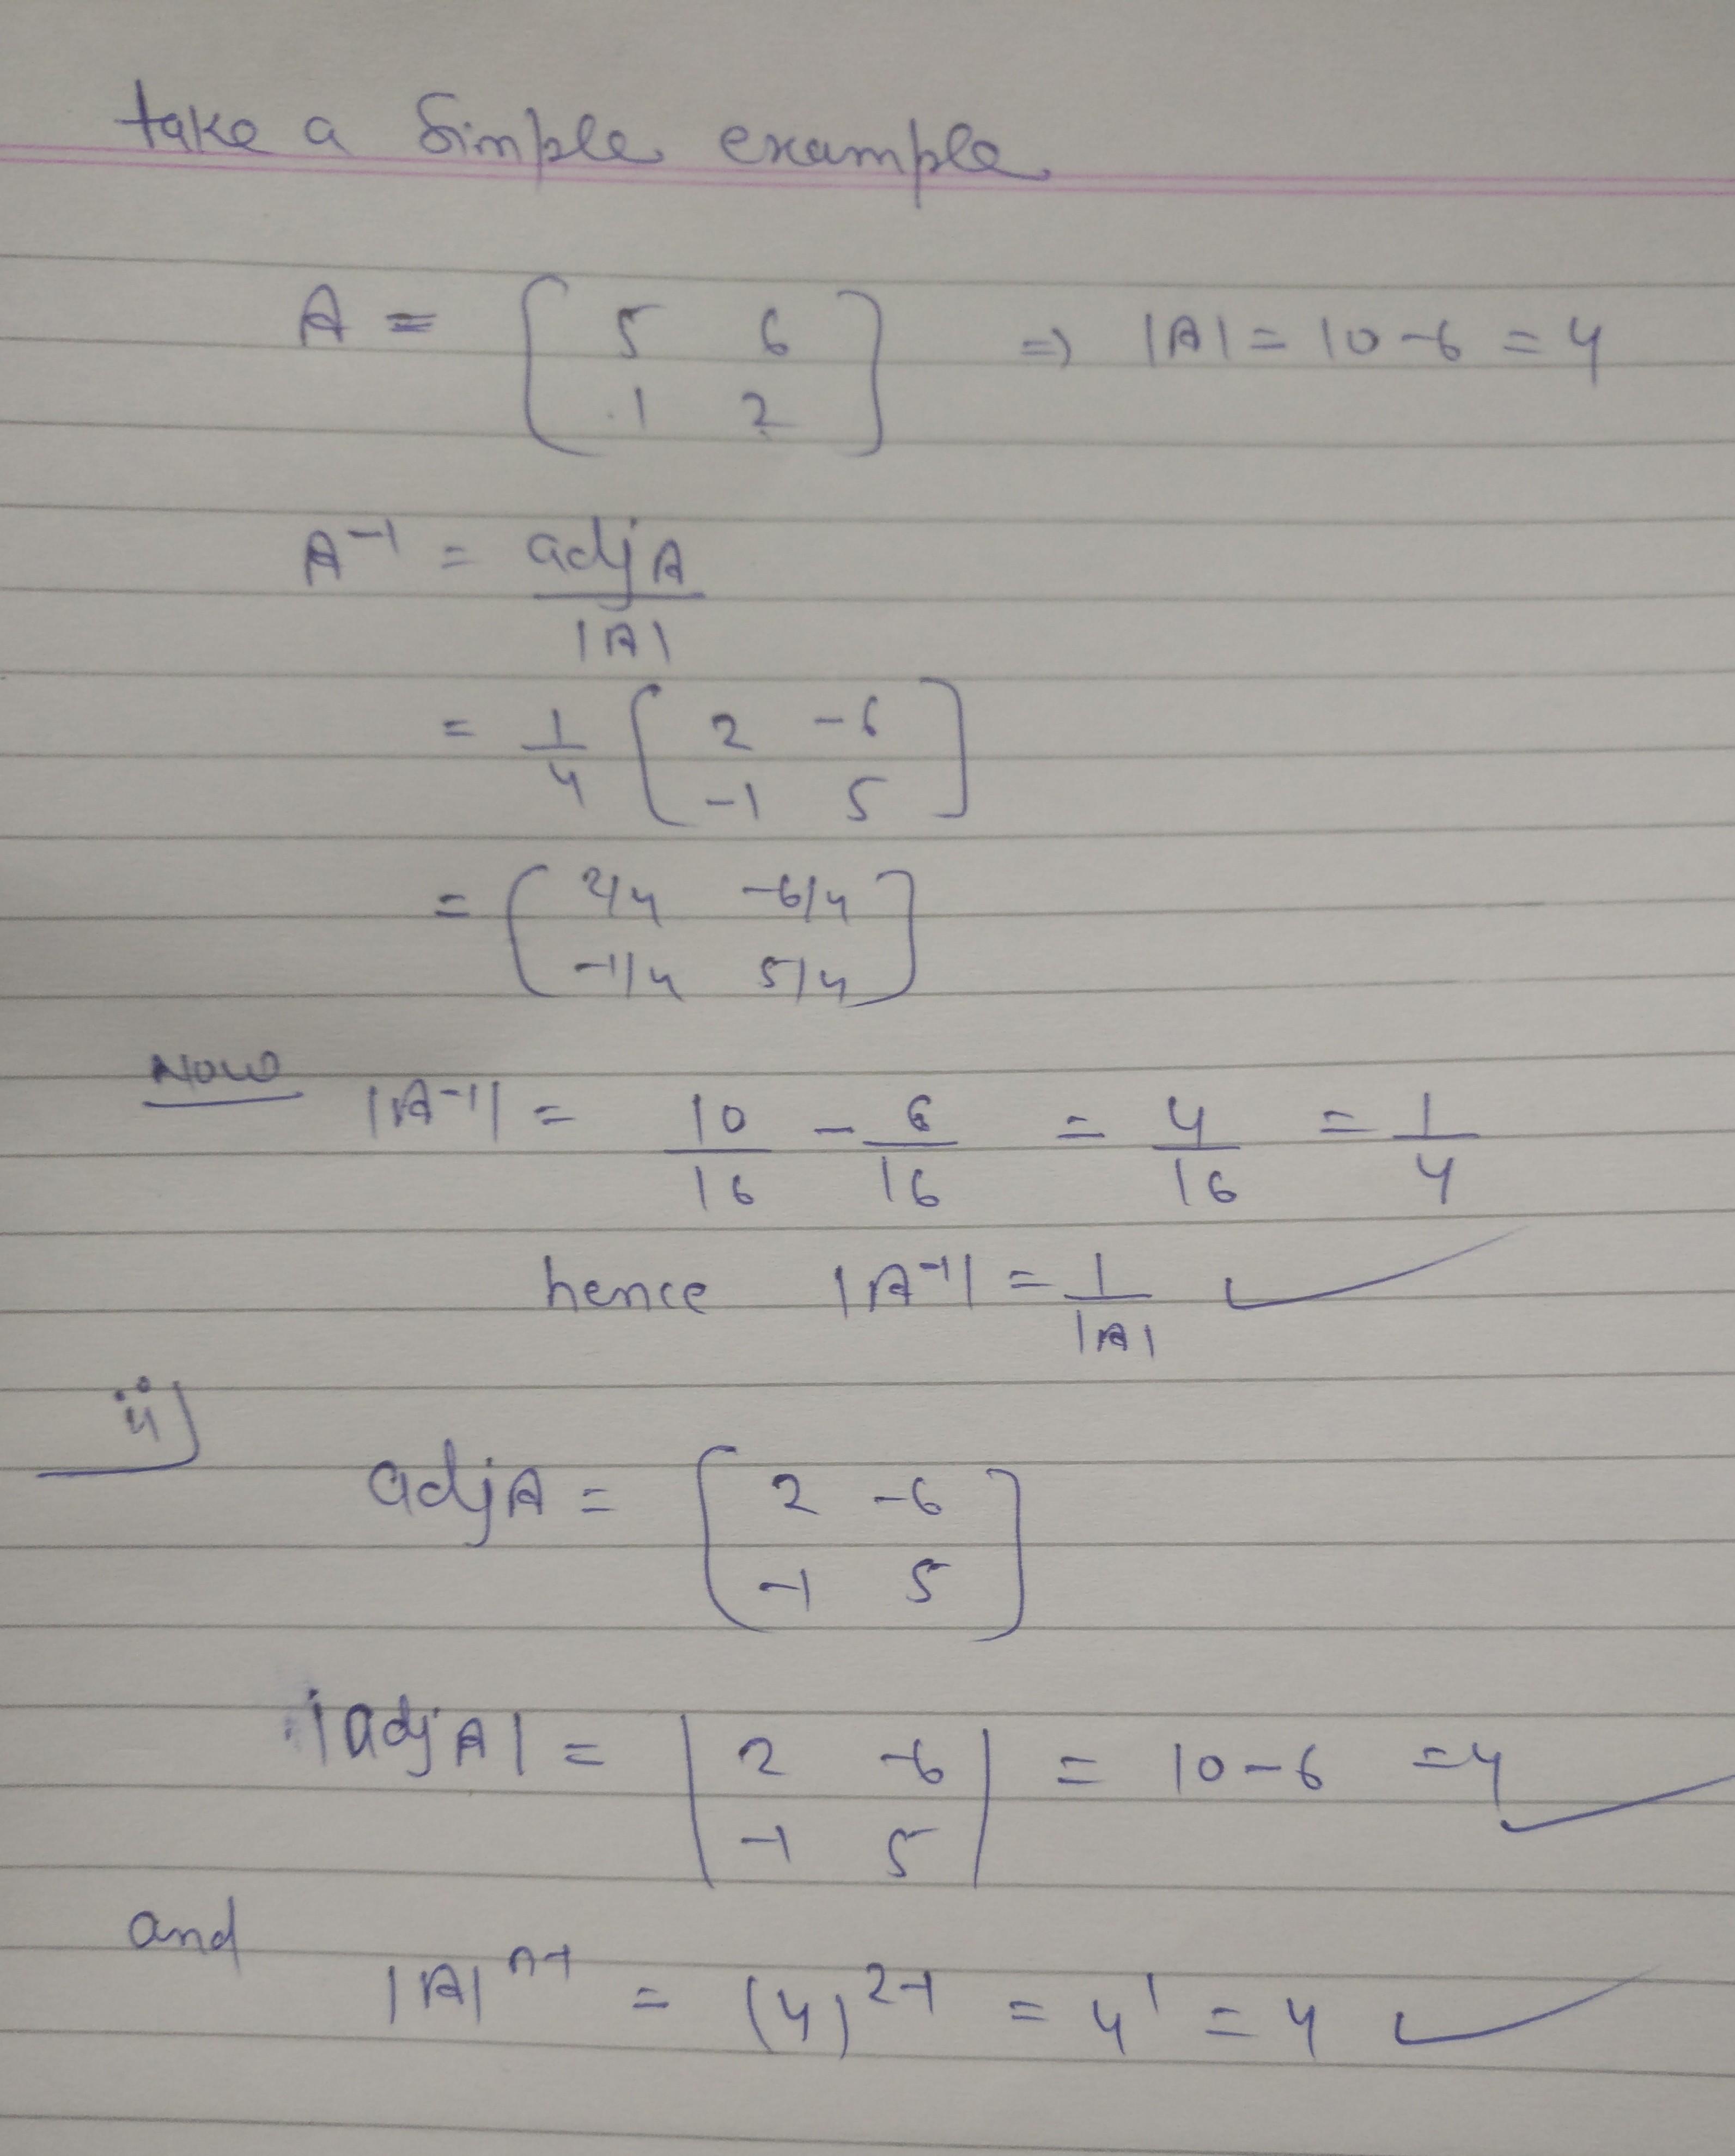 take a Simple example
A = [ 5 6 ⇒ |A| = 10-6 = 4
1 2 ]
A⁻¹ = adj A
|A|
= 1/4 [ 2 -6
-1 5 ]
= [ 2/4 -6/4
-1/4 5/4 ]
Now |A⁻¹| = 10/16 - 6/16 = 4/16 = 1/4
hence |A⁻¹| = 1/|A| ✓
ii)
adj A = [ 2 -6
-1 5 ]
|adj A| = | 2 -6 | = 10-6 = 4 ✓
-1 5
and
|A|ⁿ⁻¹ = (4)²⁻¹ = 4¹ = 4 ✓